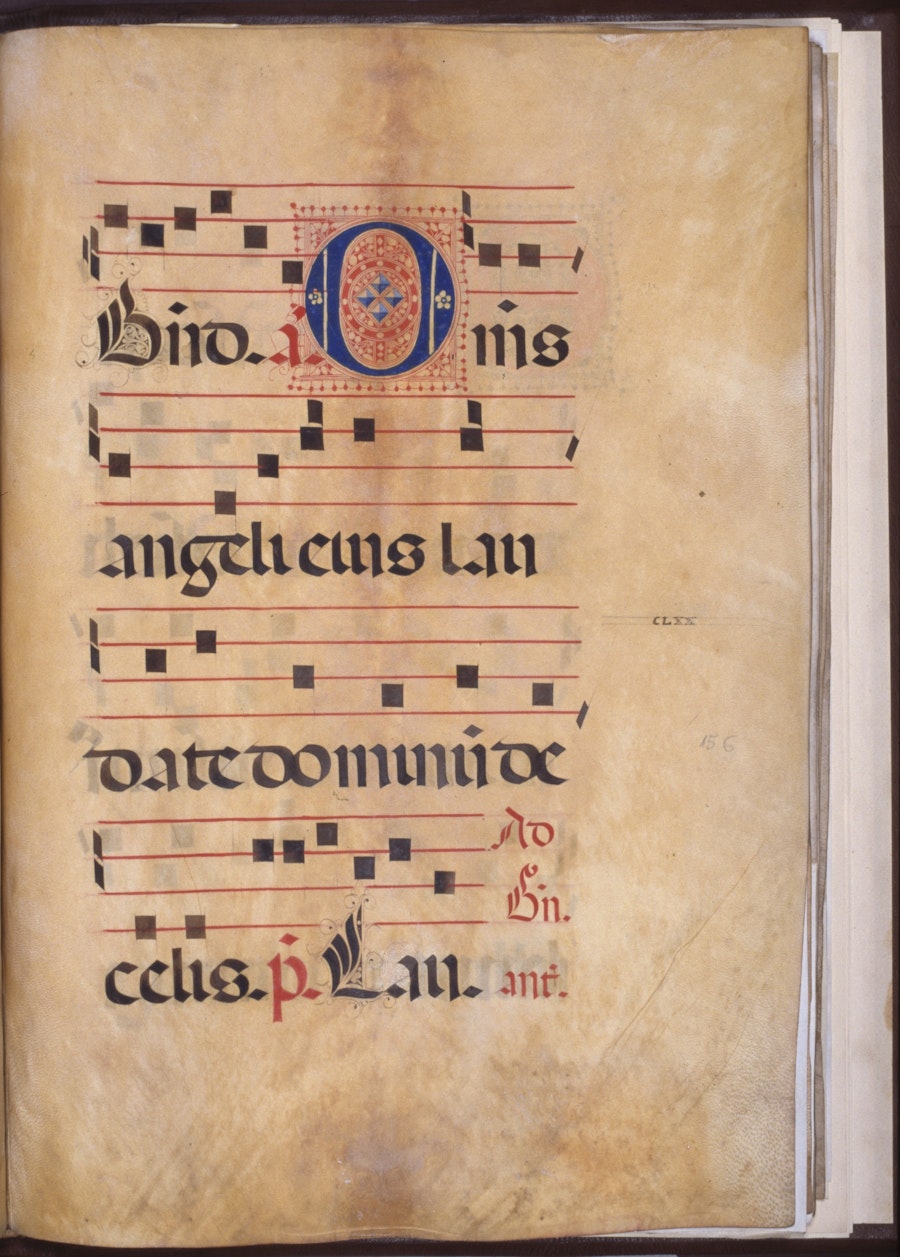 Bn̄d. ā. Om̄s
angeli eius lau
date dominū de
celis. p̄. Lau.
Ad
Bn̄.
ant̄.
CLXX
156